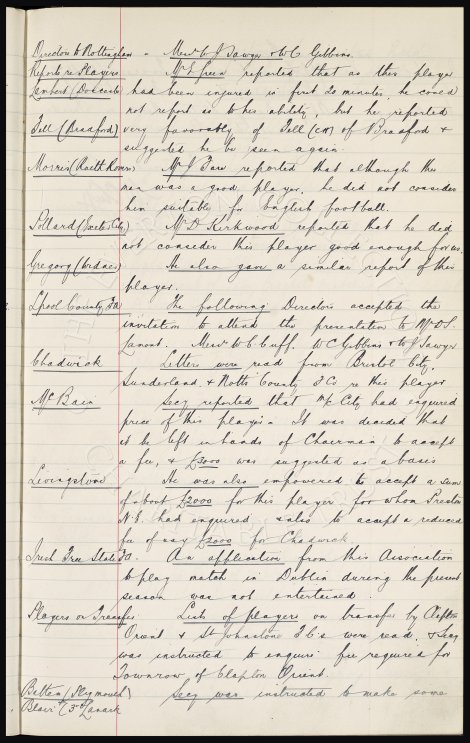 Directors to Nottingham - Messrs W J Sawyer & W C Gibbins.
Reports re Players Mr E Green reported that as this player
Lambert (Doncaster) had been injured in first 20 minutes he could
not report as to his ability, but he reported
Tell (Bradford) very favorably of Tell (CH) of Bradford &
suggested he be seen again.
Morris (Raith Rovers) Mr J Fare reported that although this
man was a good player, he did not consider
him suitable for English football.
Pollard (Exeter City) Mr D Kirkwood reported that he did
not consider this player good enough for us.
Gregory (Widnes) He also gave a similar report of this
player.
L'pool County F.A. The following Directors accepted the
invitation to attend the presentation to Mr D. S.
Lamont. Messrs W C Cuff, W C Gibbins & W J Sawyer
Chadwick Letters were read from Bristol City,
Sunderland & Notts County F Cs re this player
McBain Secy reported that M/c City had enquired
price of this player. It was decided that
it be left in hands of Chairman to accept
a fee, & £3000 was suggested as a basis
Levingstone He was also empowered to accept a sum
of about £2000 for this player for whom Preston
N.E. had enquired & also to accept a reduced
fee of say £2000 for Chadwick
Irish Free State F.A. An application from this Association
to play match in Dublin during the present
season was not entertained.
Players on Transfer Lists of players on transfer by Clapton
Orient & St Johnstone F.C's were read, & Secy
was instructed to enquire fee required for
Townrow of Clapton Orient.
Batten (Plymouth) Secy was instructed to make some
Blair (3rd Lanark